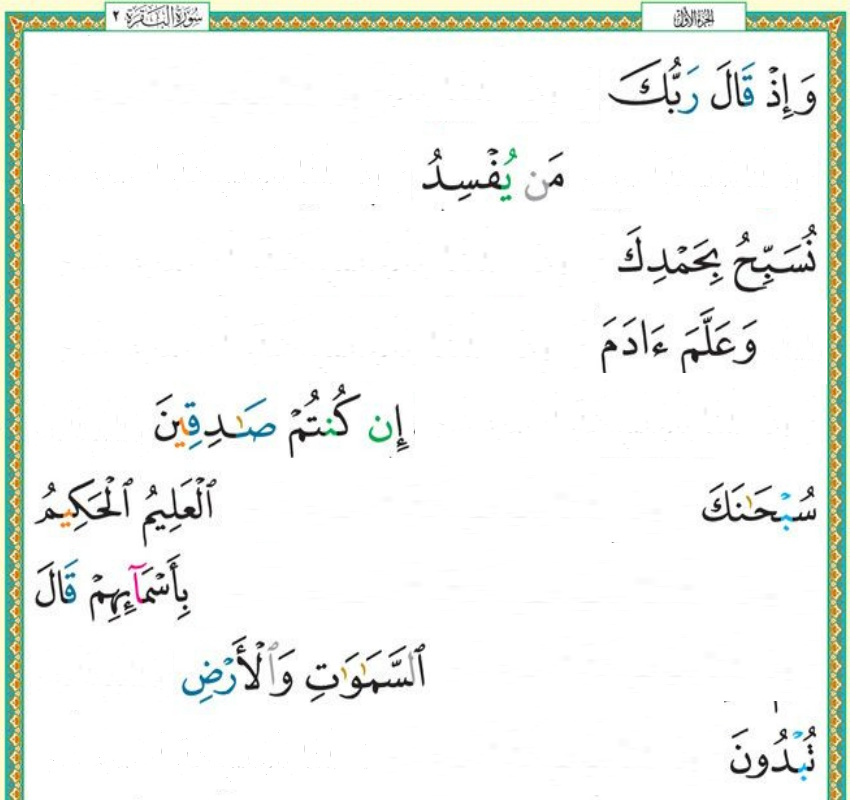 الجزء الأول سورة البقرة ٢
وَإِذْ قَالَ رَبُّكَ
مَن يُفْسِدُ
نُسَبِّحُ بِحَمْدِكَ
وَعَلَّمَ ءَادَمَ
إِن كُنتُمْ صَـٰدِقِينَ
سُبْحَـٰنَكَ ٱلْعَلِيمُ ٱلْحَكِيمُ
بِأَسْمَآئِهِمْ قَالَ
ٱلسَّمَـٰوَٰتِ وَٱلْأَرْضِ
تُبْدُونَ